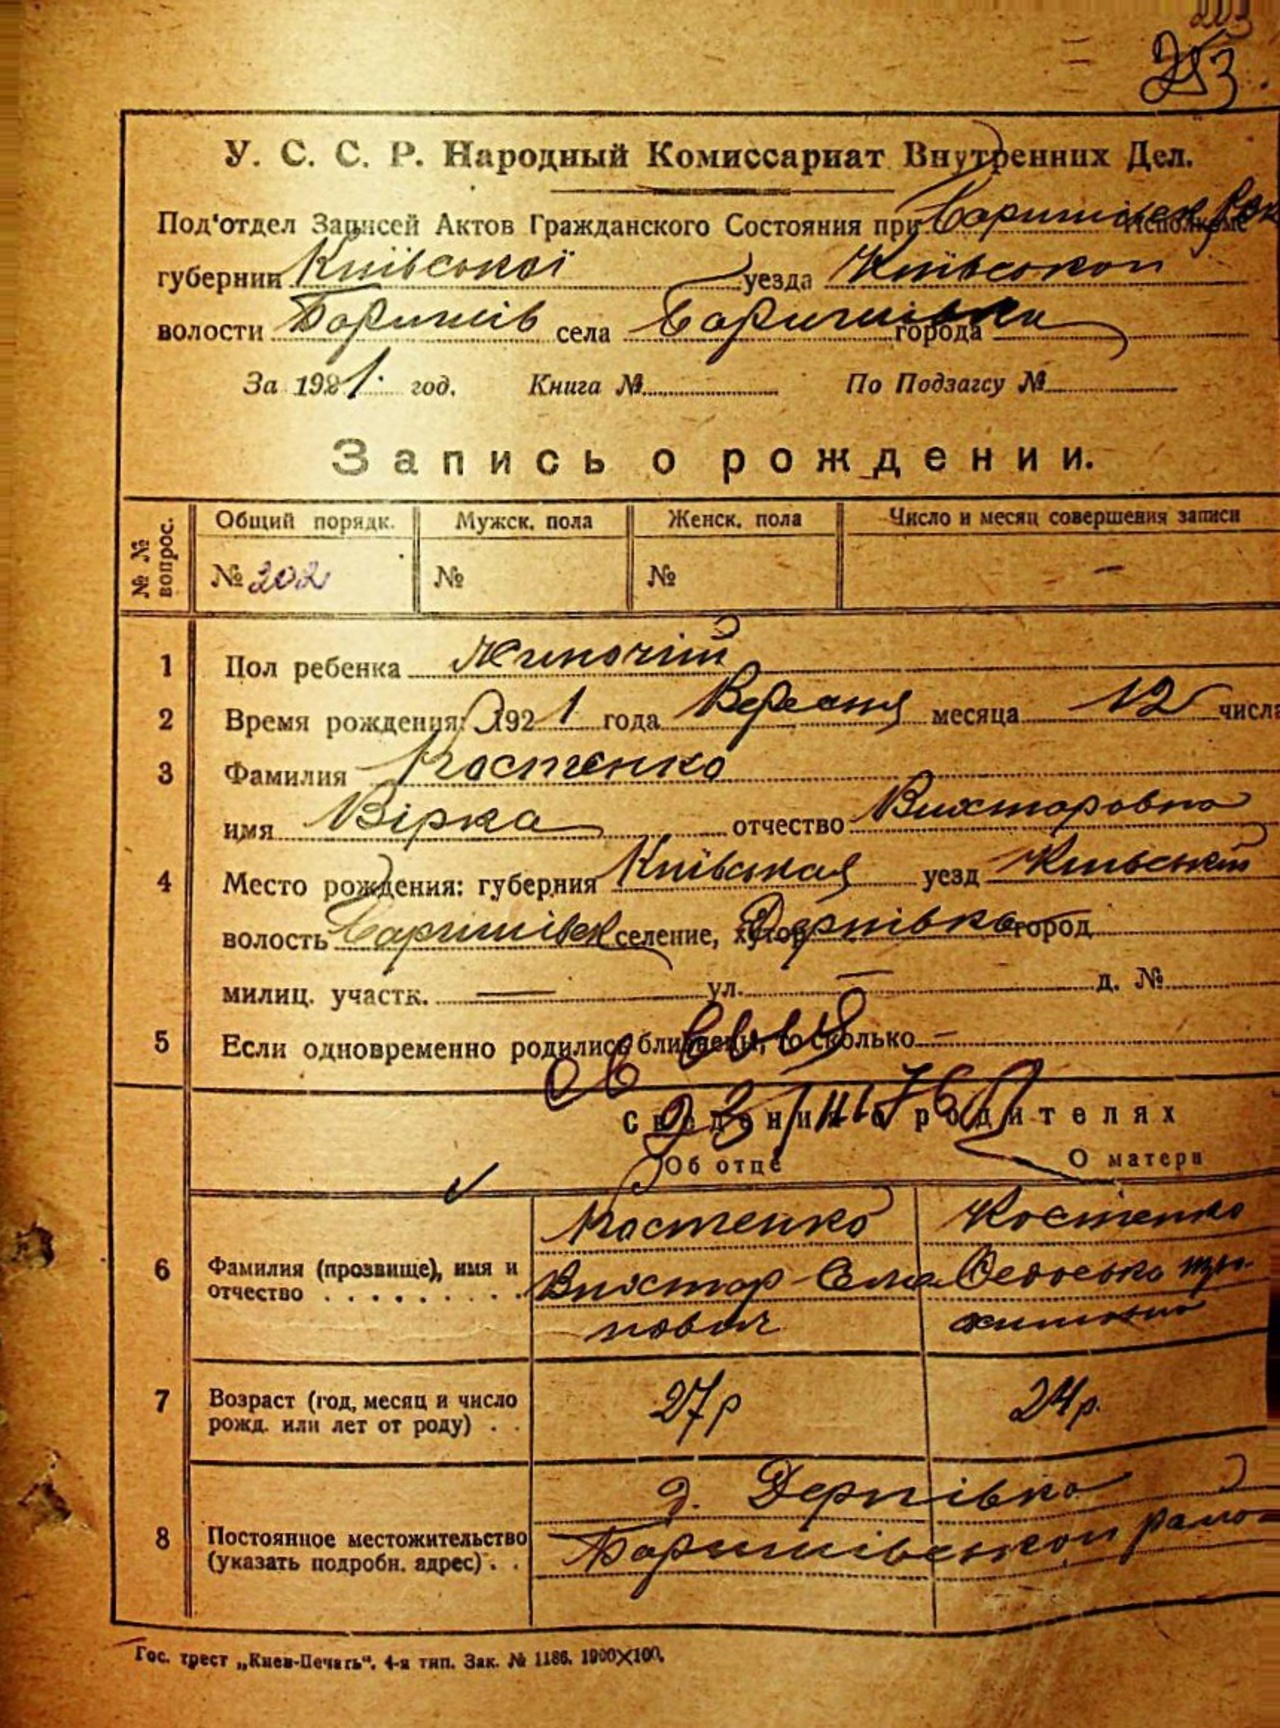 203
253.
У. С. С. Р. Народный Комиссариат Внутренних Дел.
Под'отдел Записей Актов Гражданского Состояния при Исполкоме
губернии Київської уезда Київського
волости Баришів села Баришівка города
За 1921. год. Книга № По Подзагсу №
Запись о рождении.
№ № вопрос. Общий порядк. Мужск. пола Женск. пола Число и месяц совершения записи
№ 202 № № —
1 Пол ребенка Жиночій
2 Время рождения: 1921 года Вересня месяца 12 числа
3 Фамилия Костенко
имя Вірка отчество Вихторовна
4 Место рождения: губерния Київская уезд Київський
волость селение, хутор Дернівка город
милиц. участк. — ул. — д. №
5 Если одновременно родились близнецы, то сколько —
23/III-76
Сведения о родителях
Об отце О матери
6 Фамилия (прозвище), имя и отчество Костенко Костенко
Вихтор
7 Возраст (год, месяц и число рожд. или лет от роду) 27р 24р.
8 Постоянное местожительство (указать подробн. адрес) д. Дернівка
Гос. трест „Киев-Печать“. 4-я тип. Зак. № 1186. 1900×100.